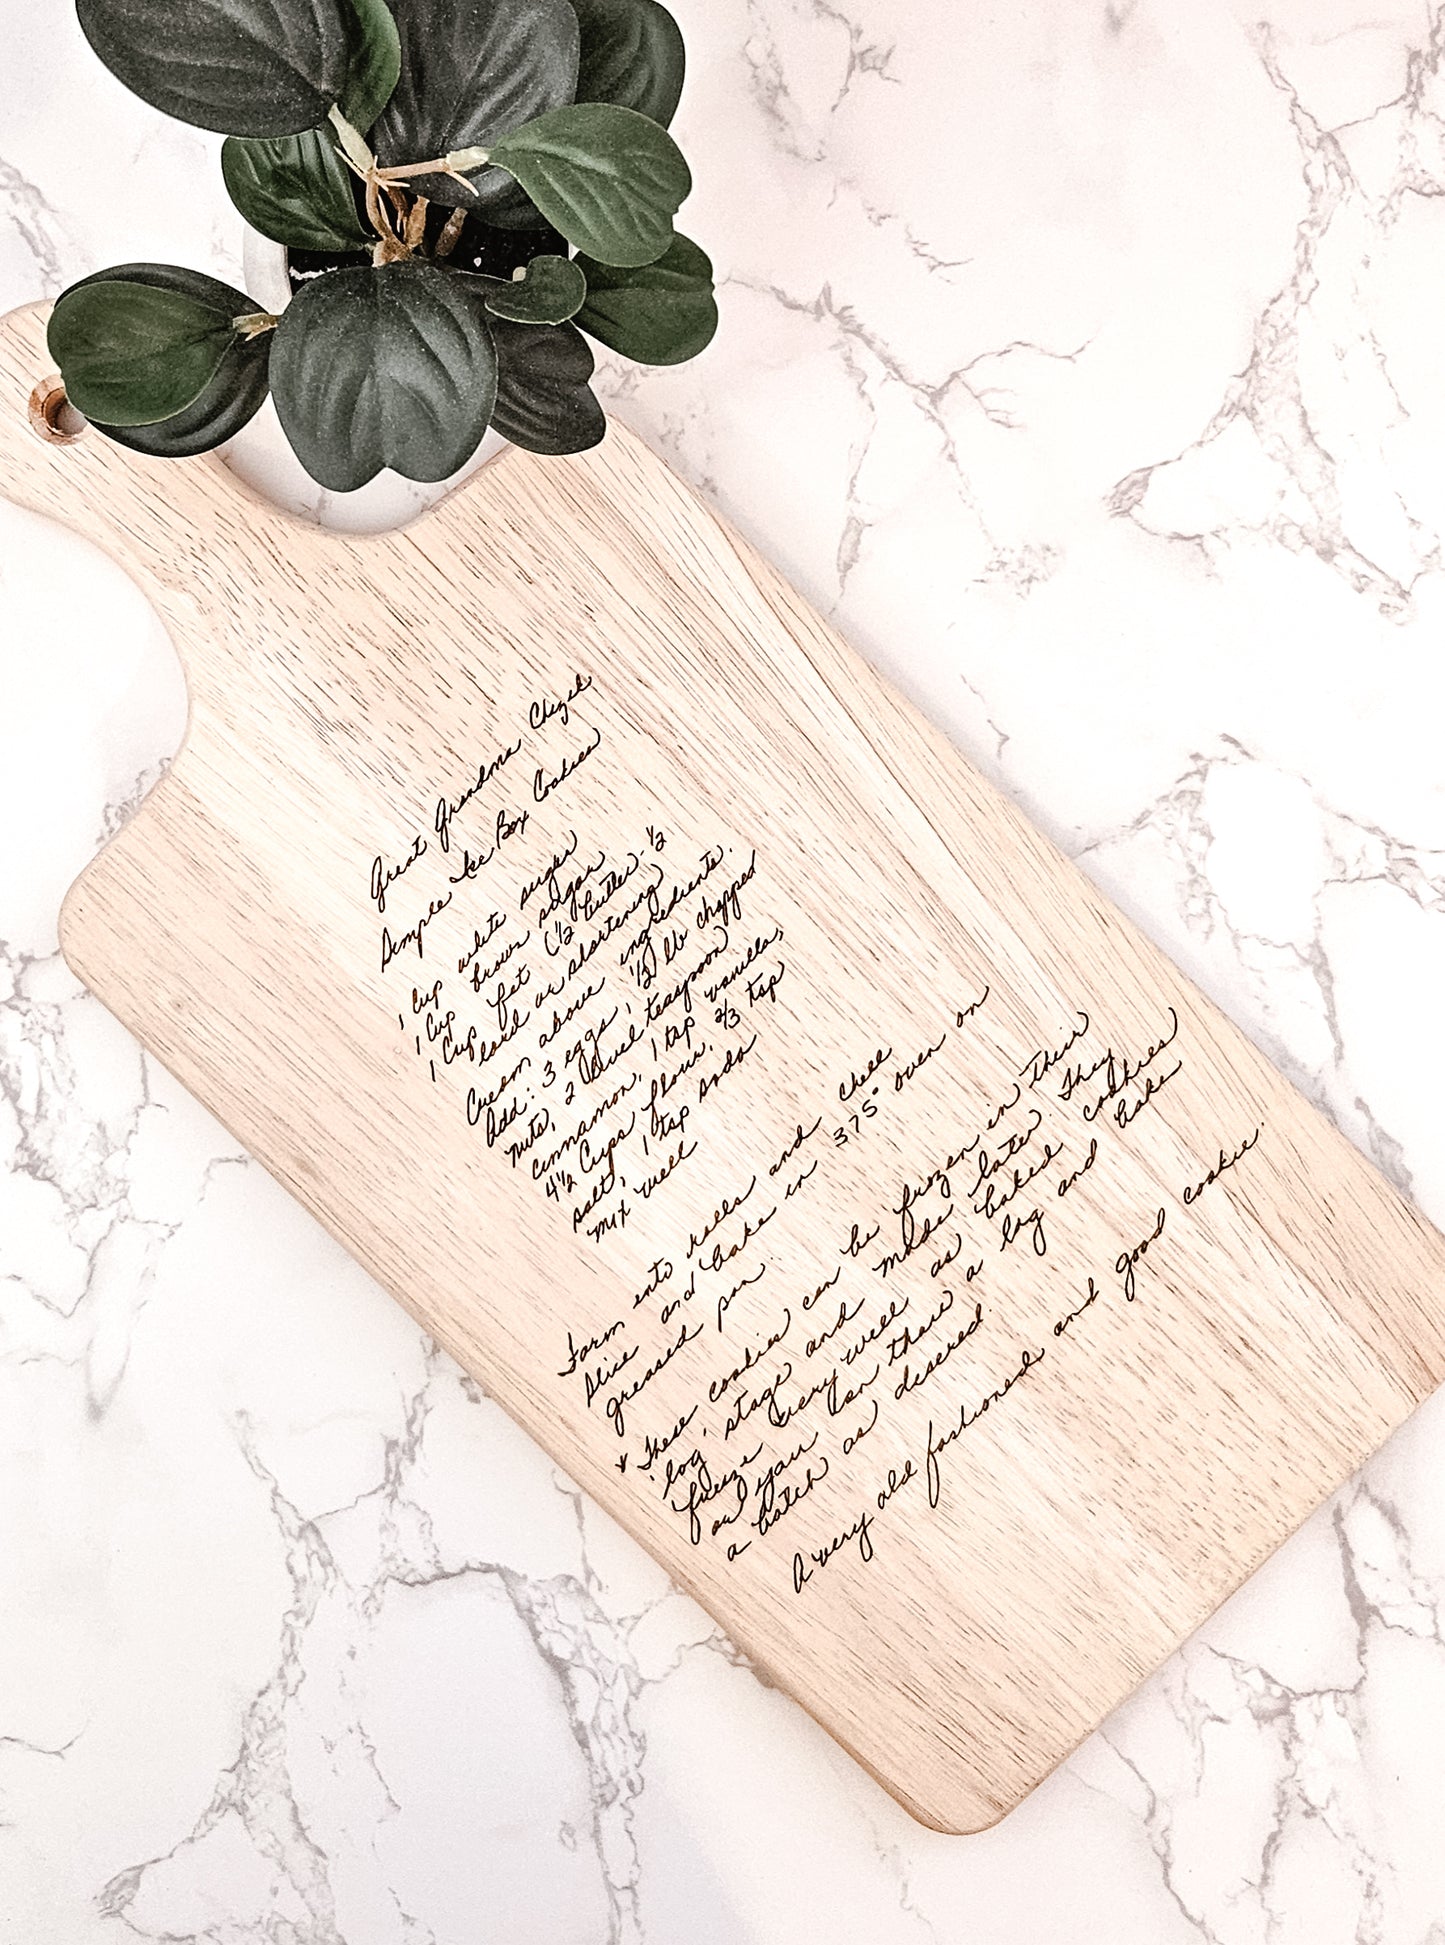 Great Grandma
Simple Ice Box Cookies
1 Cup white sugar
1 Cup brown sugar
1 Cup fat (1/2 butter - 1/2
lard or shortening)
Cream above ingredients.
Add: 3 eggs, 1/2 lb chopped
nuts, 2 level teaspoon
cinnamon, 1 tsp vanilla,
4 1/2 Cups flour, 2/3 tsp
salt, 1 tsp soda
Mix well
Form into rolls and chill
slice and bake in 375° oven on
greased pan.
* These cookies can be frozen in their
'log' stage and made later. They
freeze very well as baked cookies
or you can thaw a log and bake
a batch as desired.
A very old fashioned and good cookie.